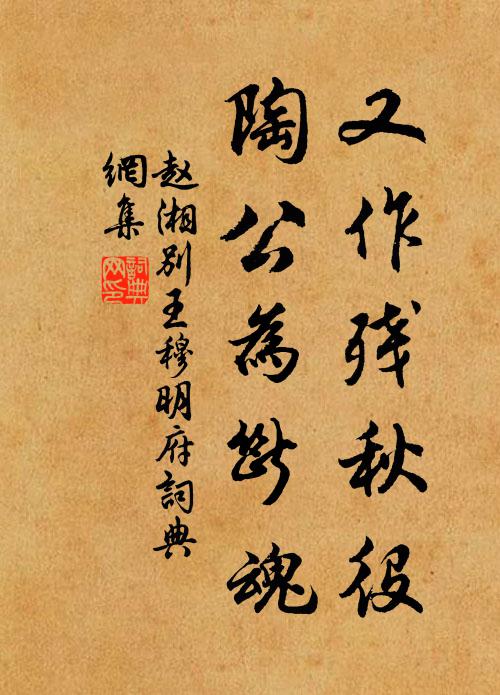 又作残秋役
陶公為断魂
赵湘别王穆明府詞典
網集
詞典
网印